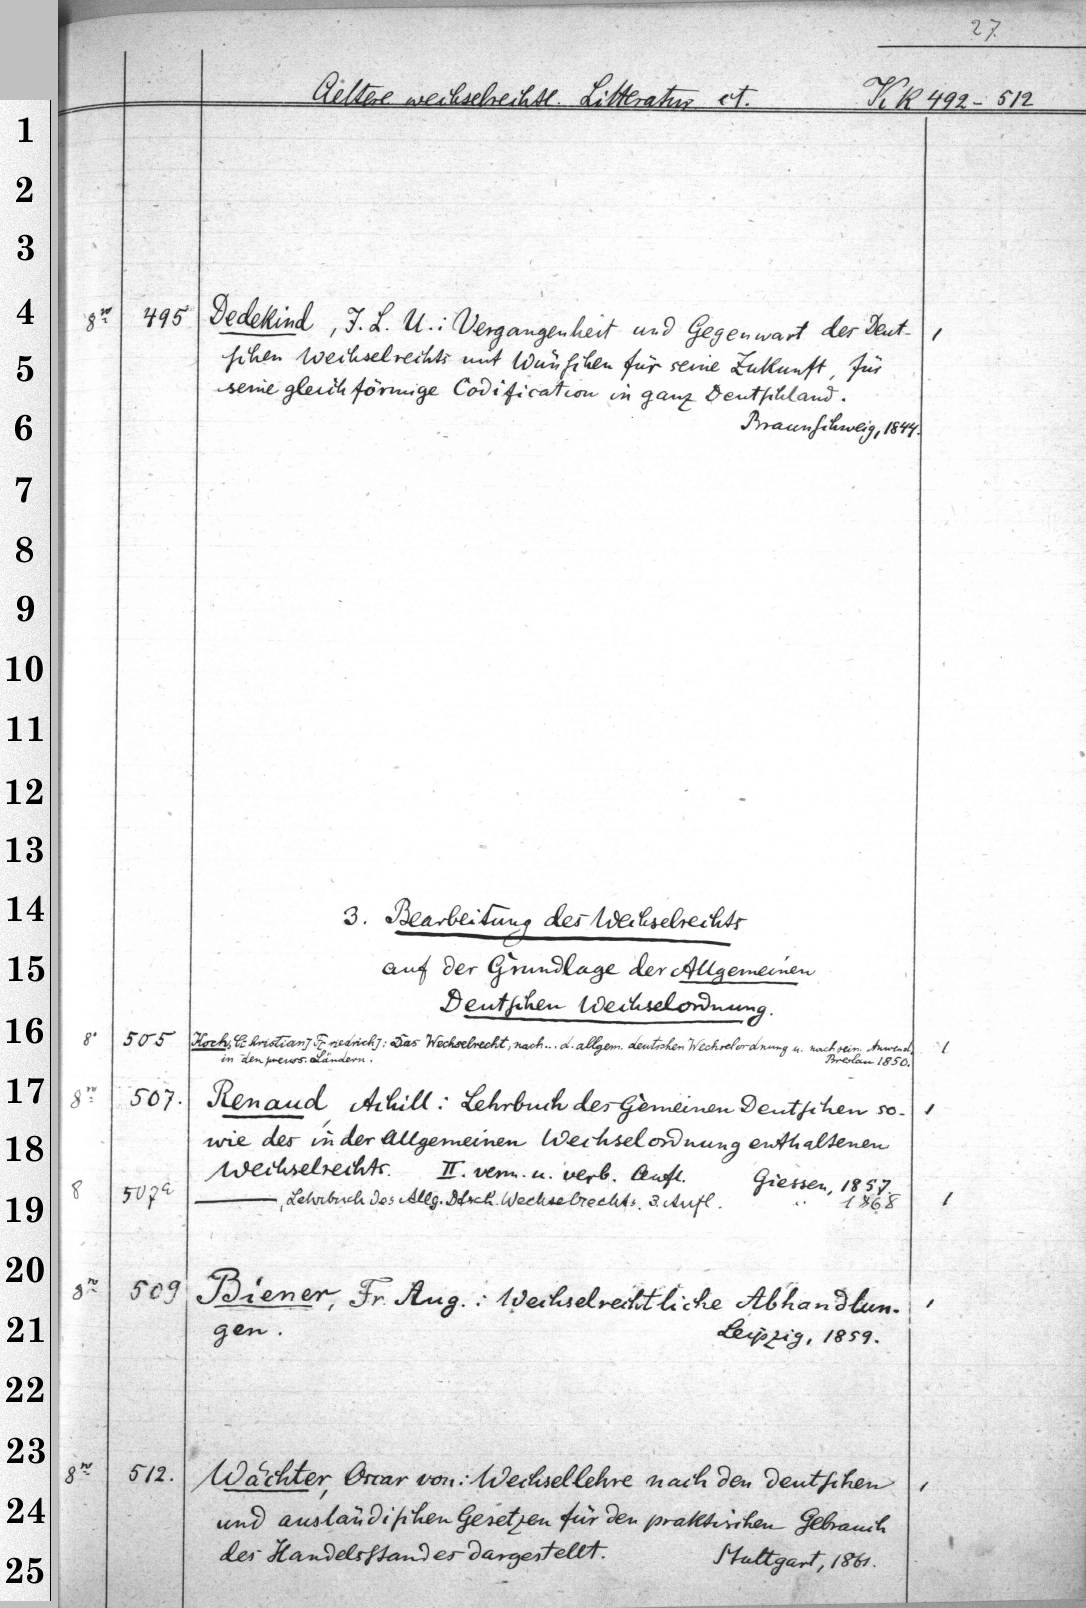 27.
Aeltere wechselrechtl. Litteratur et. K, k 492-512
1
2
3
4
8vo 495 Dedekind, J. L. U.: Vergangenheit und Gegenwart des Deut- 1
5
schen Wechselrechts mit Wünschen für seine Zukunft, für
seine gleichförmige Codification in ganz Deutschland.
6
Braunschweig, 1844.
7
8
9
10
11
12
13
14
3. Bearbeitung des Wechselrechts
15
auf der Grundlage der Allgemeinen
Deutschen Wechselordnung.
16
8° 505 Koch, C[hristian] F[riedrich]: Das Wechselrecht, nach... d. allgem. deutschen Wechselordnung u. nach sein. Anwend. 1
in den preuss. Ländern. Breslau 1850.
17
8vo 507. Renaud, Achill: Lehrbuch des Gemeinen Deutschen so- 1
18
wie des in der Allgemeinen Wechselordnung enthaltenen
Wechselrechts. II. verm. u. verb. Aufl. Giessen, 1857.
19
8 507a ———, Lehrbuch des Allg. Dtsch. Wechselrechts. 3. Aufl. " 1868 1
20
8vo 509 Biener, Fr. Aug.: Wechselrechtliche Abhandlun- 1
21
gen. Leipzig, 1859.
22
23
8vo 512. Wächter, Oscar von: Wechsellehre nach den deutschen 1
24
und ausländischen Gesetzen für den praktischen Gebrauch
25
des Handelsstandes dargestellt. Stuttgart, 1861.